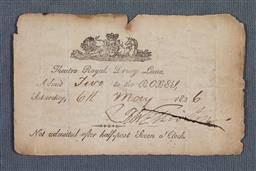 Theatre Royal Drury Lane.
Admit Two to the BOXES,
Saturday, 6th May 1836
Not admitted after half past Seven o'Clock.